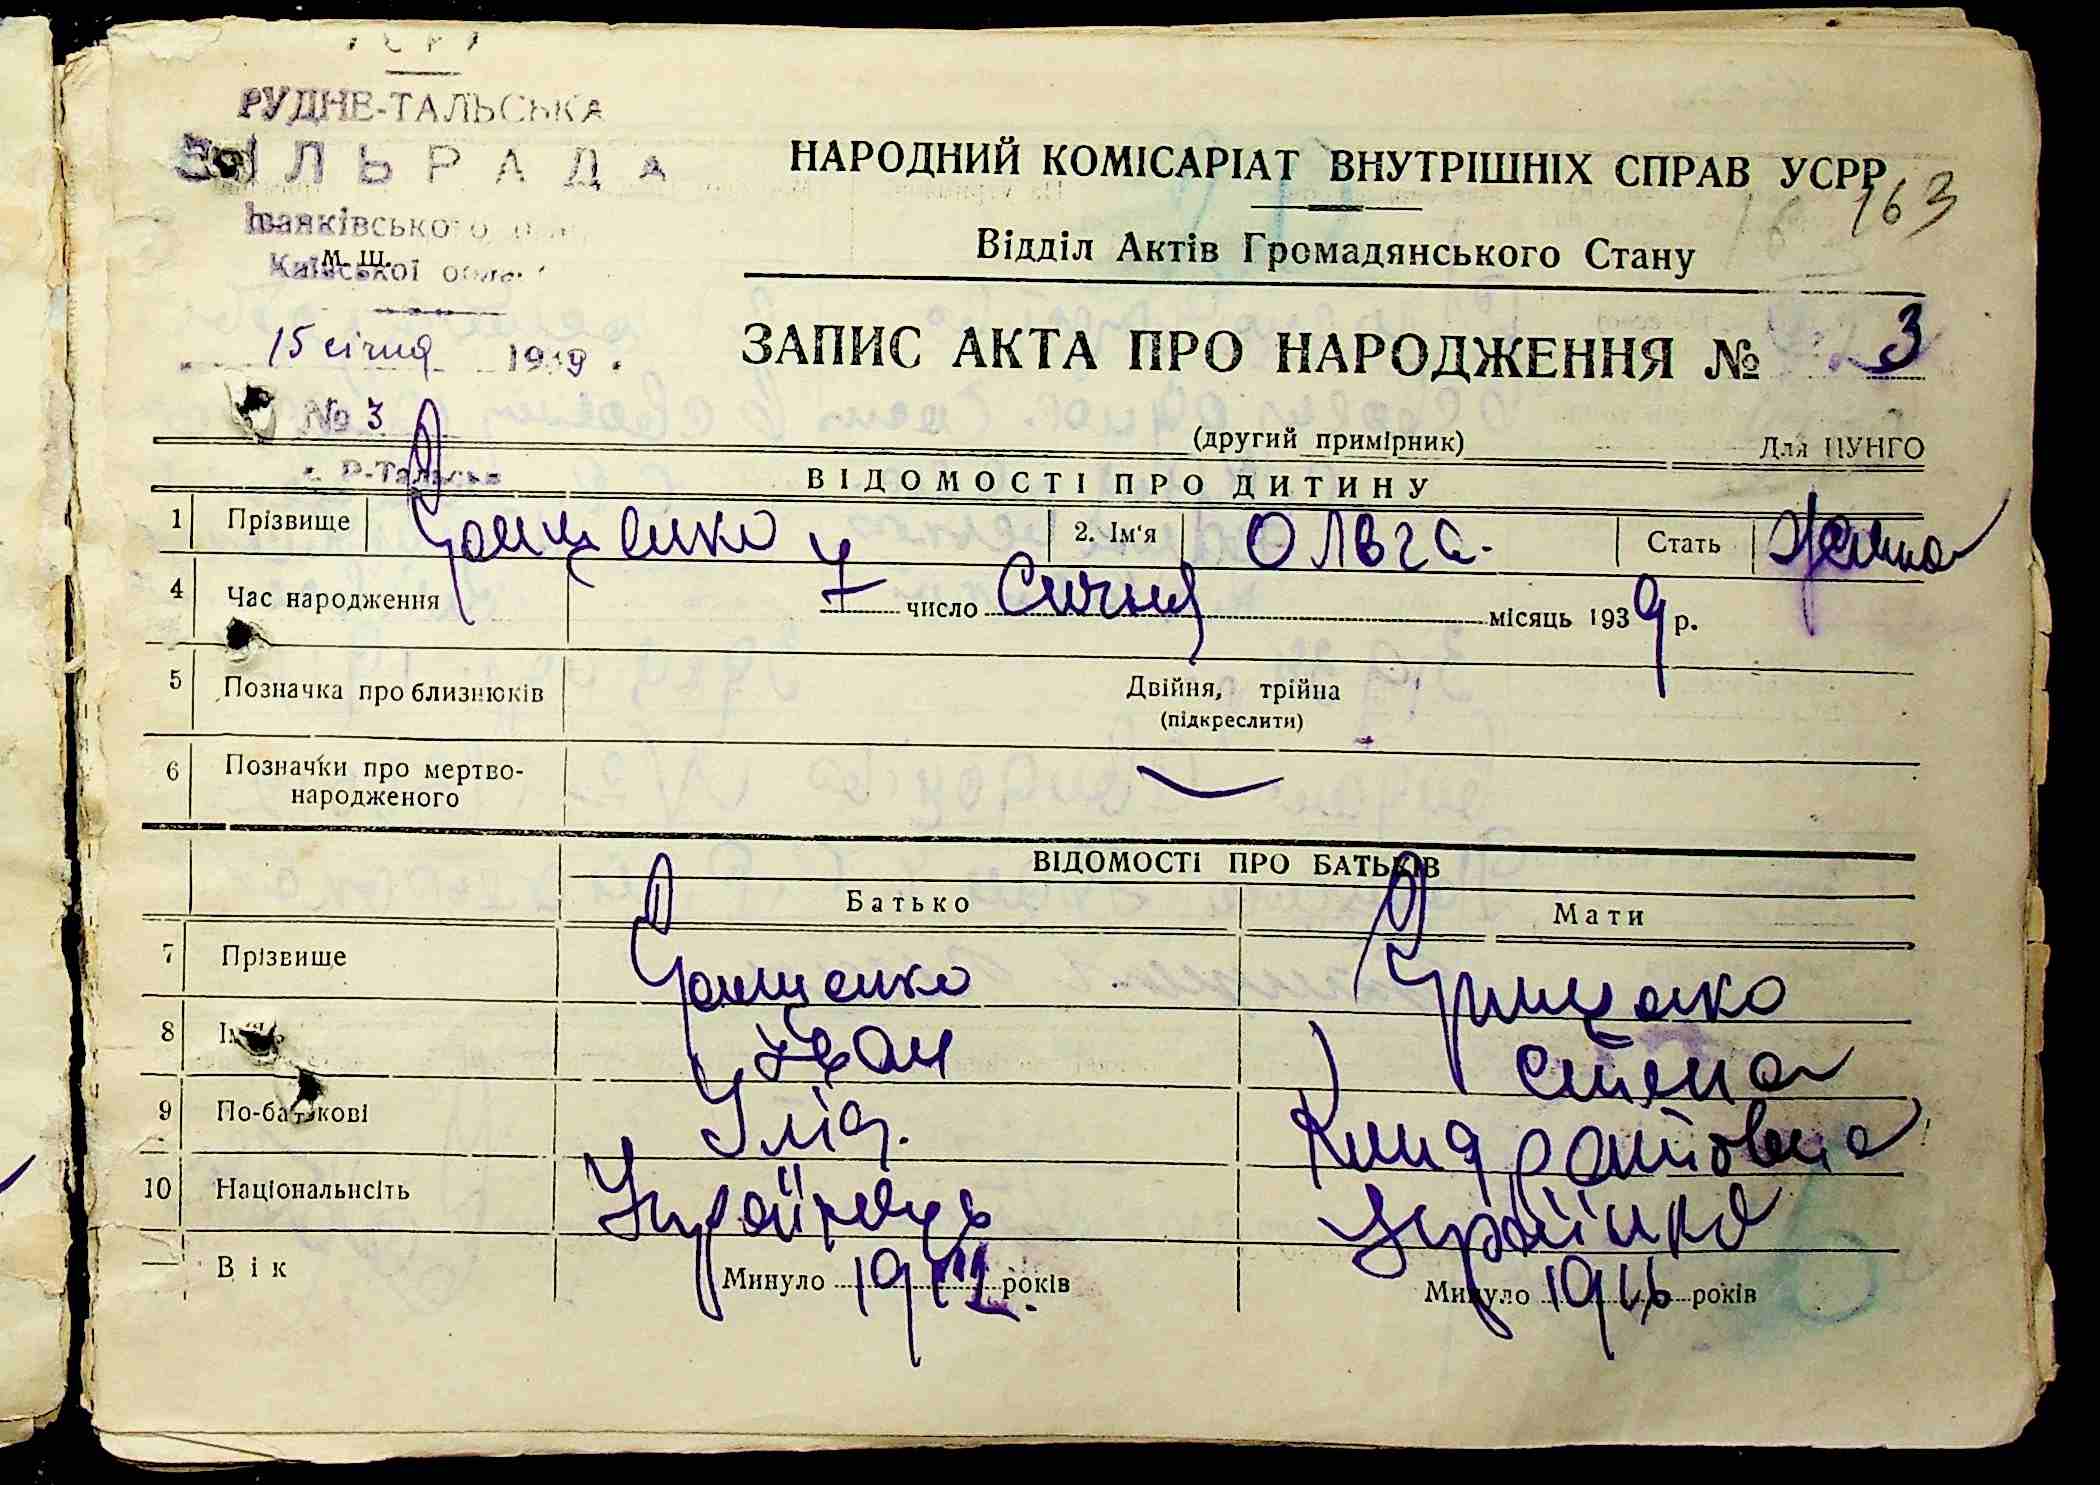 РУДНЕ-ТАЛЬСЬКА
СІЛЬРАДА
Іванківського
М. Ш.
Київської
15 січня 1939 .
№ 3
Р-Тальськ
НАРОДНИЙ КОМІСАРІАТ ВНУТРІШНІХ СПРАВ УСРР
163
Відділ Актів Громадянського Стану
ЗАПИС АКТА ПРО НАРОДЖЕННЯ № 3
(другий примірник) Для ЦУНГО
ВІДОМОСТІ ПРО ДИТИНУ
1 Прізвище 2. Ім'я Ольга. Стать
4 Час народження 7 число Сичня місяць 1939 р.
5 Позначка про близнюків Двійня, трійна
(підкреслити)
6 Позначки про мертво-
народженого
ВІДОМОСТІ ПРО БАТЬКІВ
Батько Мати
7 Прізвище Грищенко
8 Іван
9 По-батькові Киндратовна
10 Національнсіть Українець Українка
Вік Минуло 1912 років Минуло 1916 років